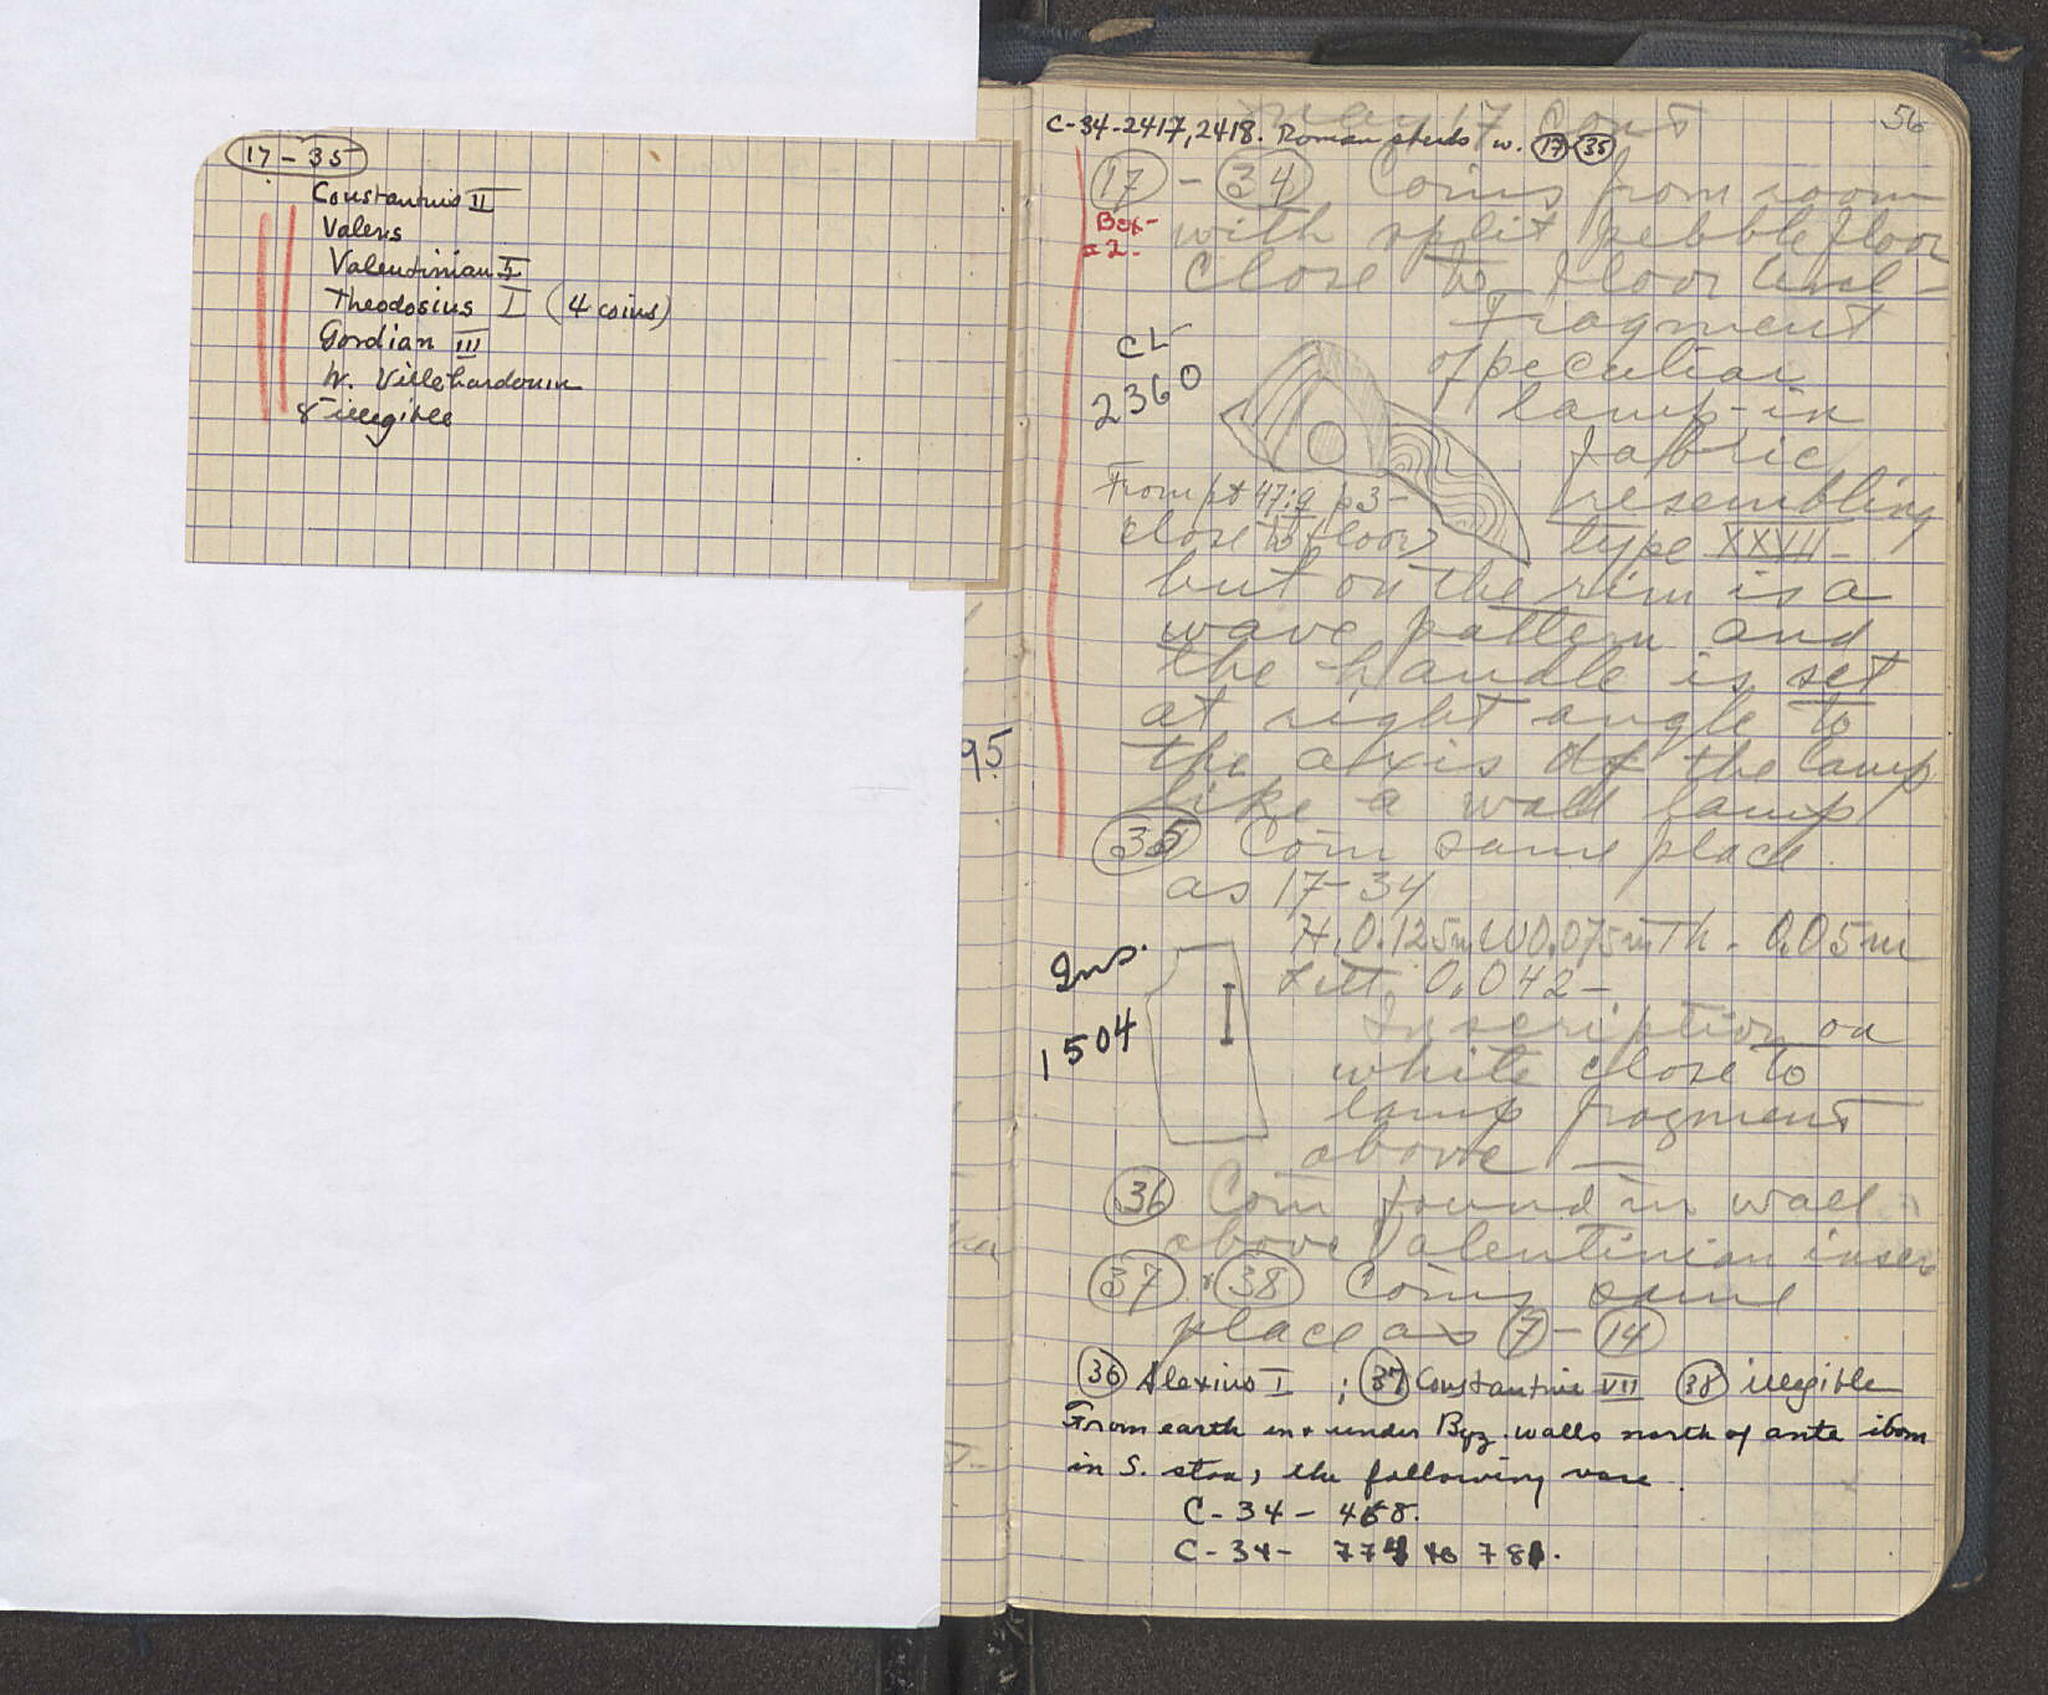 17 - 35
Constantius II
Valens
Valentinian I
Theodosius I (4 coins)
Gordian III
W. Villehardouin
8 illegible
95
56
May 17 Cont
C-34-2417, 2418. Roman sherds w. 17-35
17 - 34 Coins from room
Box-
with split pebble floor
close to floor level -
Fragment
CL
2360
of peculiar
lamp - in
fabric
resembling
type XXVII -
From pt 47:9 p3 -
close to floor
but on the rim is a
wave pattern and
the handle is set
at right angle to
the axis of the lamp
like a wall lamp
35 Coin same place
as 17-34
H. 0.125m W 0.075m Th. 0.05m
Lett. 0.042 -
Ins.
1504
I
Inscription on
white close to
lamp fragment
above -
36 Coin found in wall
above Valentinian inscr
37 & 38 Coins same
place as 7 - 14
36 Alexius I ; 37 Constantine VII 38 illegible
From earth in & under Byz. walls north of
in S. stoa, the following vase.
C-34- 468.
C-34- 774 to 781.